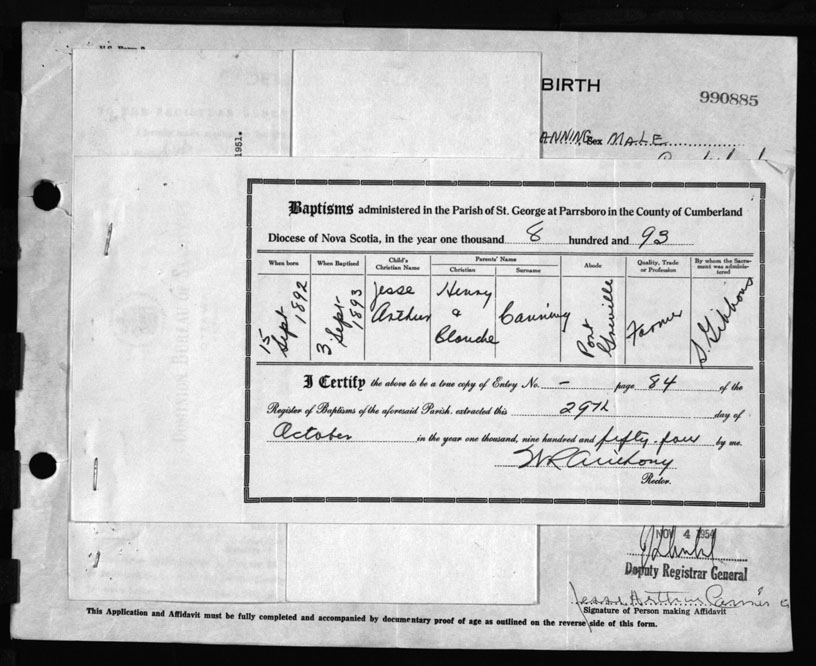 BIRTH
990885
ANNING Sex MALE
1951.
Baptisms administered in the Parish of St. George at Parrsboro in the County of Cumberland
Diocese of Nova Scotia, in the year one thousand 8 hundred and 93
When born
When Baptised
Child's Christian Name
Parents' Name
Christian
Surname
Abode
Quality, Trade or Profession
By whom the Sacrament was administered
15 Sept 1892
3 Sept- 1893
Jesse Arthur
Henry & Blanche
Canning
Port Greville
Farmer
S. Gibbons
I Certify the above to be a true copy of Entry No. - page 84 of the
Register of Baptisms of the aforesaid Parish. extracted this 29th day of
October in the year one thousand, nine hundred and fifty-four by me.
WR Anthony
Rector.
NOV 4 1954
Deputy Registrar General
Jesse Arthur
Signature of Person making Affidavit
This Application and Affidavit must be fully completed and accompanied by documentary proof of age as outlined on the reverse side of this form.